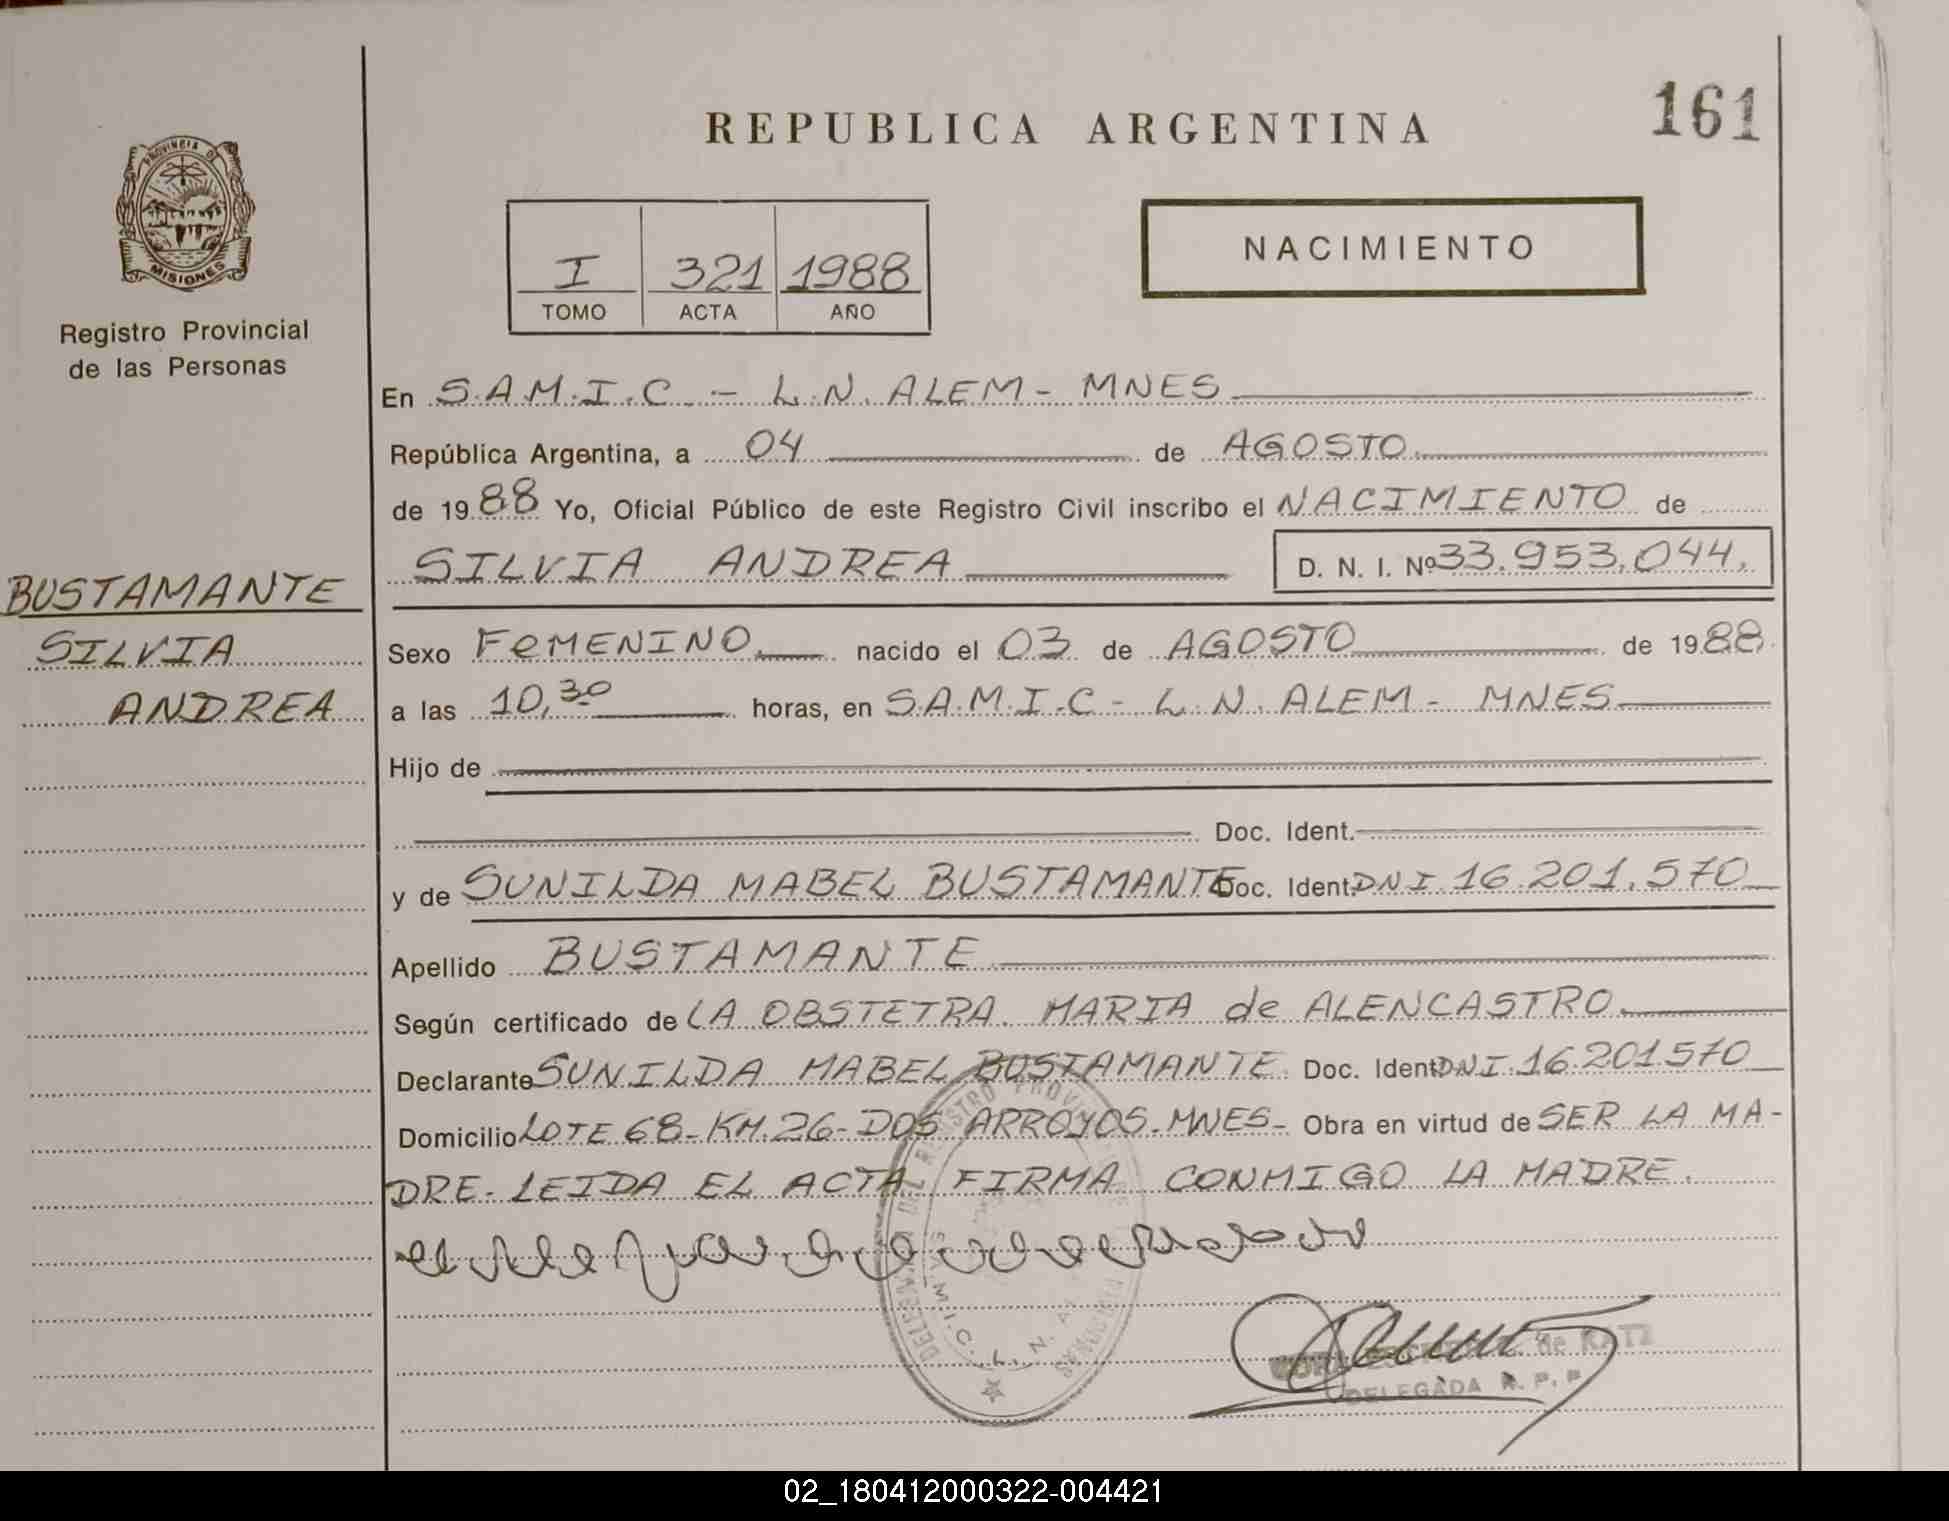 REPUBLICA ARGENTINA
161
PROVINCIA D
MISIONES
Registro Provincial
de las Personas
I 321 1988
TOMO ACTA AÑO
NACIMIENTO
En S.A.M.I.C. - L.N. ALEM - MNES
República Argentina, a 04 de AGOSTO
de 1988 Yo, Oficial Público de este Registro Civil inscribo el NACIMIENTO de
SILVIA ANDREA D. N. I. Nº 33.953.044.
BUSTAMANTE
SILVIA
ANDREA
Sexo FEMENINO nacido el 03 de AGOSTO de 1988
a las 10,30 horas, en S.A.M.I.C - L.N. ALEM - MNES
Hijo de
Doc. Ident.
y de SUNILDA MABEL BUSTAMANTE Doc. Ident. DNI 16.201.570
Apellido BUSTAMANTE
Según certificado de LA OBSTETRA. MARIA de ALENCASTRO.
Declarante SUNILDA MABEL BUSTAMANTE Doc. Ident. DNI.16.201570
Domicilio LOTE 68-KM.26-DOS ARROYOS-MNES- Obra en virtud de SER LA MA-
DRE- LEIDA EL ACTA FIRMA CONMIGO LA MADRE.
S.A.M.I.C. L. N. A
de KATZ
DELEGADA R. P. P
02_180412000322-004421